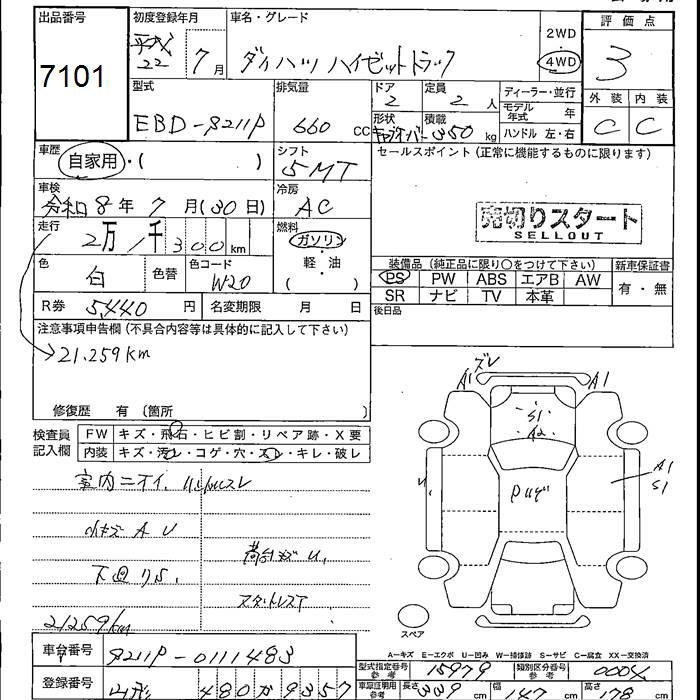 出品番号 初度登録年月 車名・グレード 評価点
7101 平成 22 7月 ダイハツ ハイゼットトラック 2WD 4WD 3
型式 排気量 ドア 定員 ディーラー・並行 外装 内装
EBD-S211P 660 CC 2 2 人 モデル年式 年
形状 積載 350 kg ハンドル 左・右 C C
車歴 自家用・( ) シフト 5MT セールスポイント(正常に機能するものに限ります)
車検 令和8年7月(30日) 冷房 AC
売切りスタート
SELLOUT
走行 2万1千300km 燃料 ガソリン 軽・油 ( )
装備品(純正品に限り○をつけて下さい) 新車保証書
色 白 色替 色コード W20
PS PW ABS エアB AW 有・無
SR ナビ TV 本革
R券 5,440円 名変期限 月 日 後日品
注意事項申告欄(不具合内容等は具体的に記入して下さい)
→21.259km
修復歴 有(箇所 )
検査員記入欄 FW キズ・飛石・ヒビ割・リペア跡・X要
内装 キズ・汚レ・コゲ・穴・スレ・キレ・破レ
室内ニオイ.
小キズ A U
荷台キズ U.
下廻りS.
スタットレスT
21259km
ズレ
A1 A1
S1
A2
A1
S1
スペア
A-キズ E-エクボ U-凹み W-補修跡 S-サビ C-腐食 XX-交換済
車台番号 S211P-0111483
型式指定番号 参考 15979 類別区分番号 参考 0004
登録番号 山形 480 か 9357
車庫証明用 参考 長さ 339 cm 幅 147 cm 高さ 178 cm